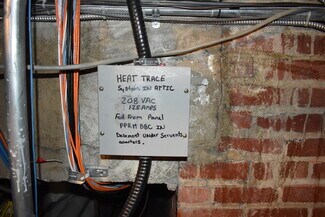 HEAT TRACE
System IN ATTIC
208 VAC
125 AMPS
Fed From Panel
PPRM BBC IN
Basement Under Servents
quarters.